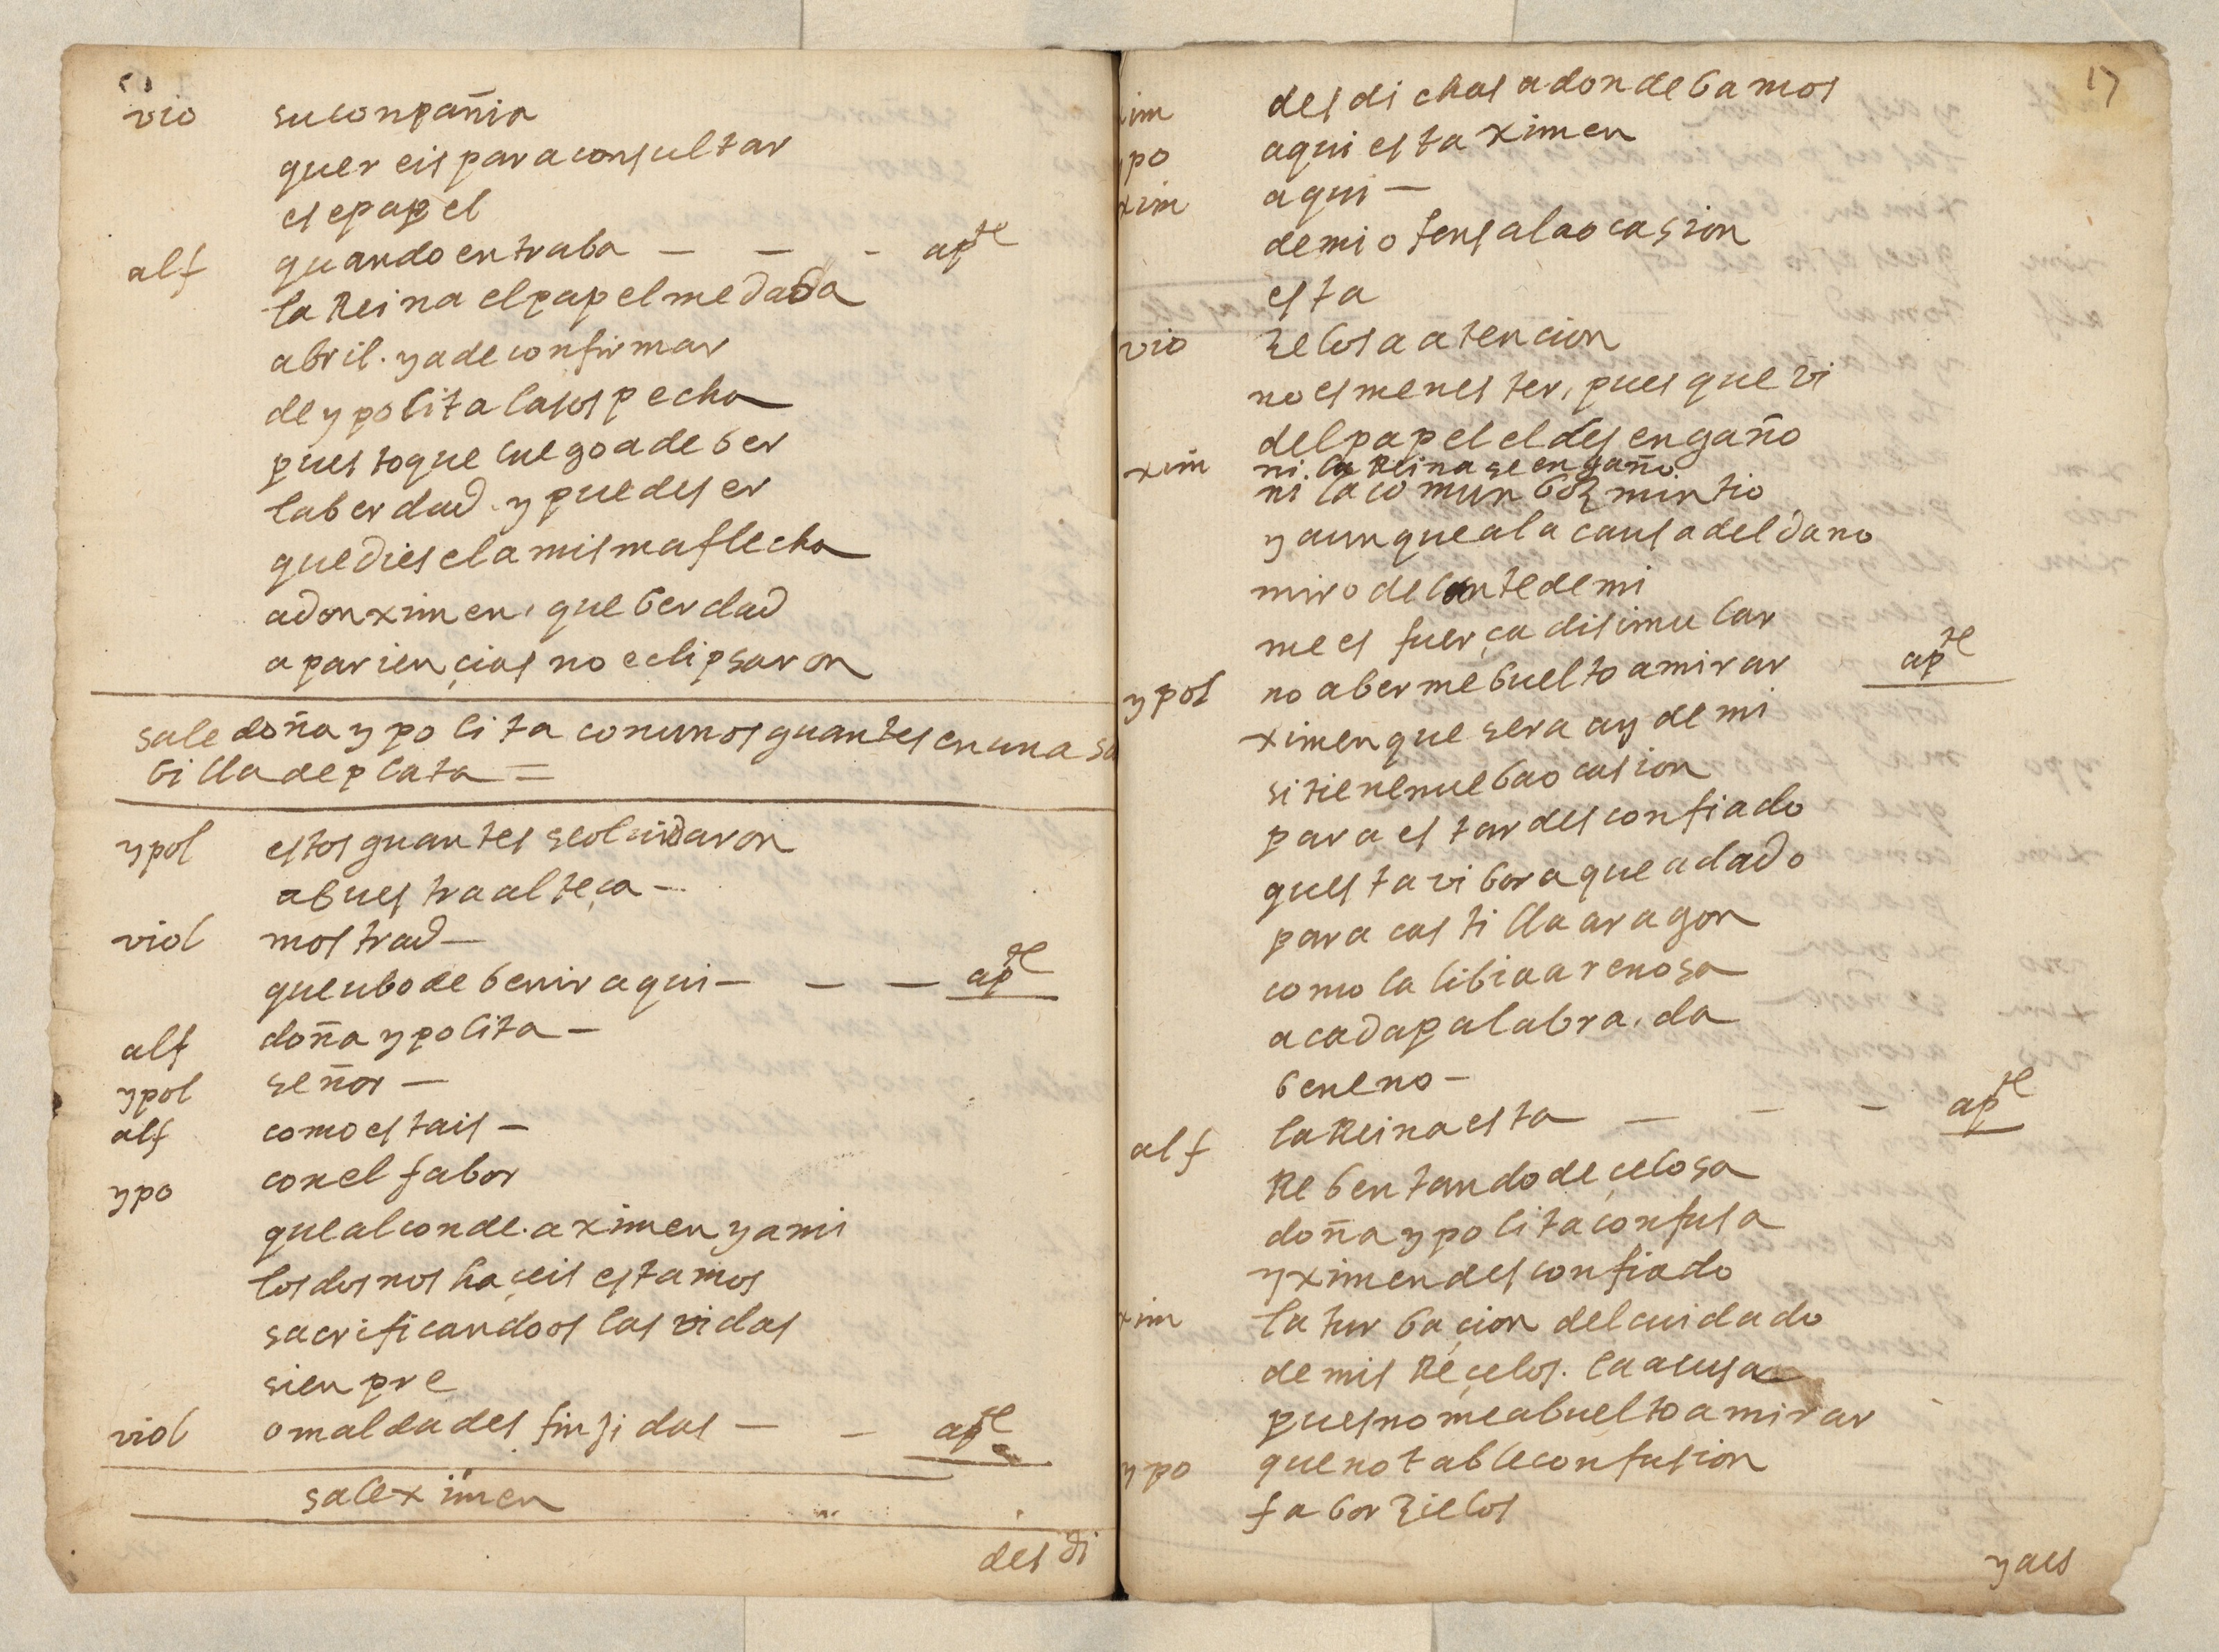 vio su conpañia
quereis para consultar
ese papel
alf quando entraba — — - apte
la Reina el papel me daba
abril. y a de confirmar
de ypolita la sospecha
puesto que luego a de ber
la berdad. y puede ser
que diese la misma flecha
a don ximen, que berdad
apariençias no eclipsaron
sale doña ypolita con unos guantes en una sa
billa de plata =
ypol estos guantes se olvidaron
a buestra alteça -
viol mostrad —
que ubo de benir aqui — — — apte
alf doña ypolita —
ypol señor —
alf como estais —
ypo con el fabor
que al conde. a ximen y a mi
los dos nos haçeis estamos
sacrificandoos las vidas
sienpre
viol o maldades finjidas — — apte
sale ximen
des di
17
xim desdichas adonde bamos
ypo aqui esta ximen
xim aqui —
de mi ofensa la ocasion
esta
vio zelosa atencion
no es menester, pues que vi
del papel el desengaño
xim ni la Reina se engaño
ni la comun boz mintio
y aunque a la causa del dano
miro delante de mi
me es fuerça disimular
ypol no aberme buelto a mirar apte
ximen que sera ay de mi
si tiene nueba ocasion
para estar desconfiado
questa vibora que a dado
para castilla aragon
como la libia arenosa
a cada palabra, da
beneno -
alf la Reina esta — — - apte
Rebentando de çelosa
doña ypolita confusa
y ximen desconfiado
xim la turbaçion del cuidado
de mis Reçelos. la acusa
pues no me a buelto a mirar
ypo que notable confusion
fabor zielos
y aes